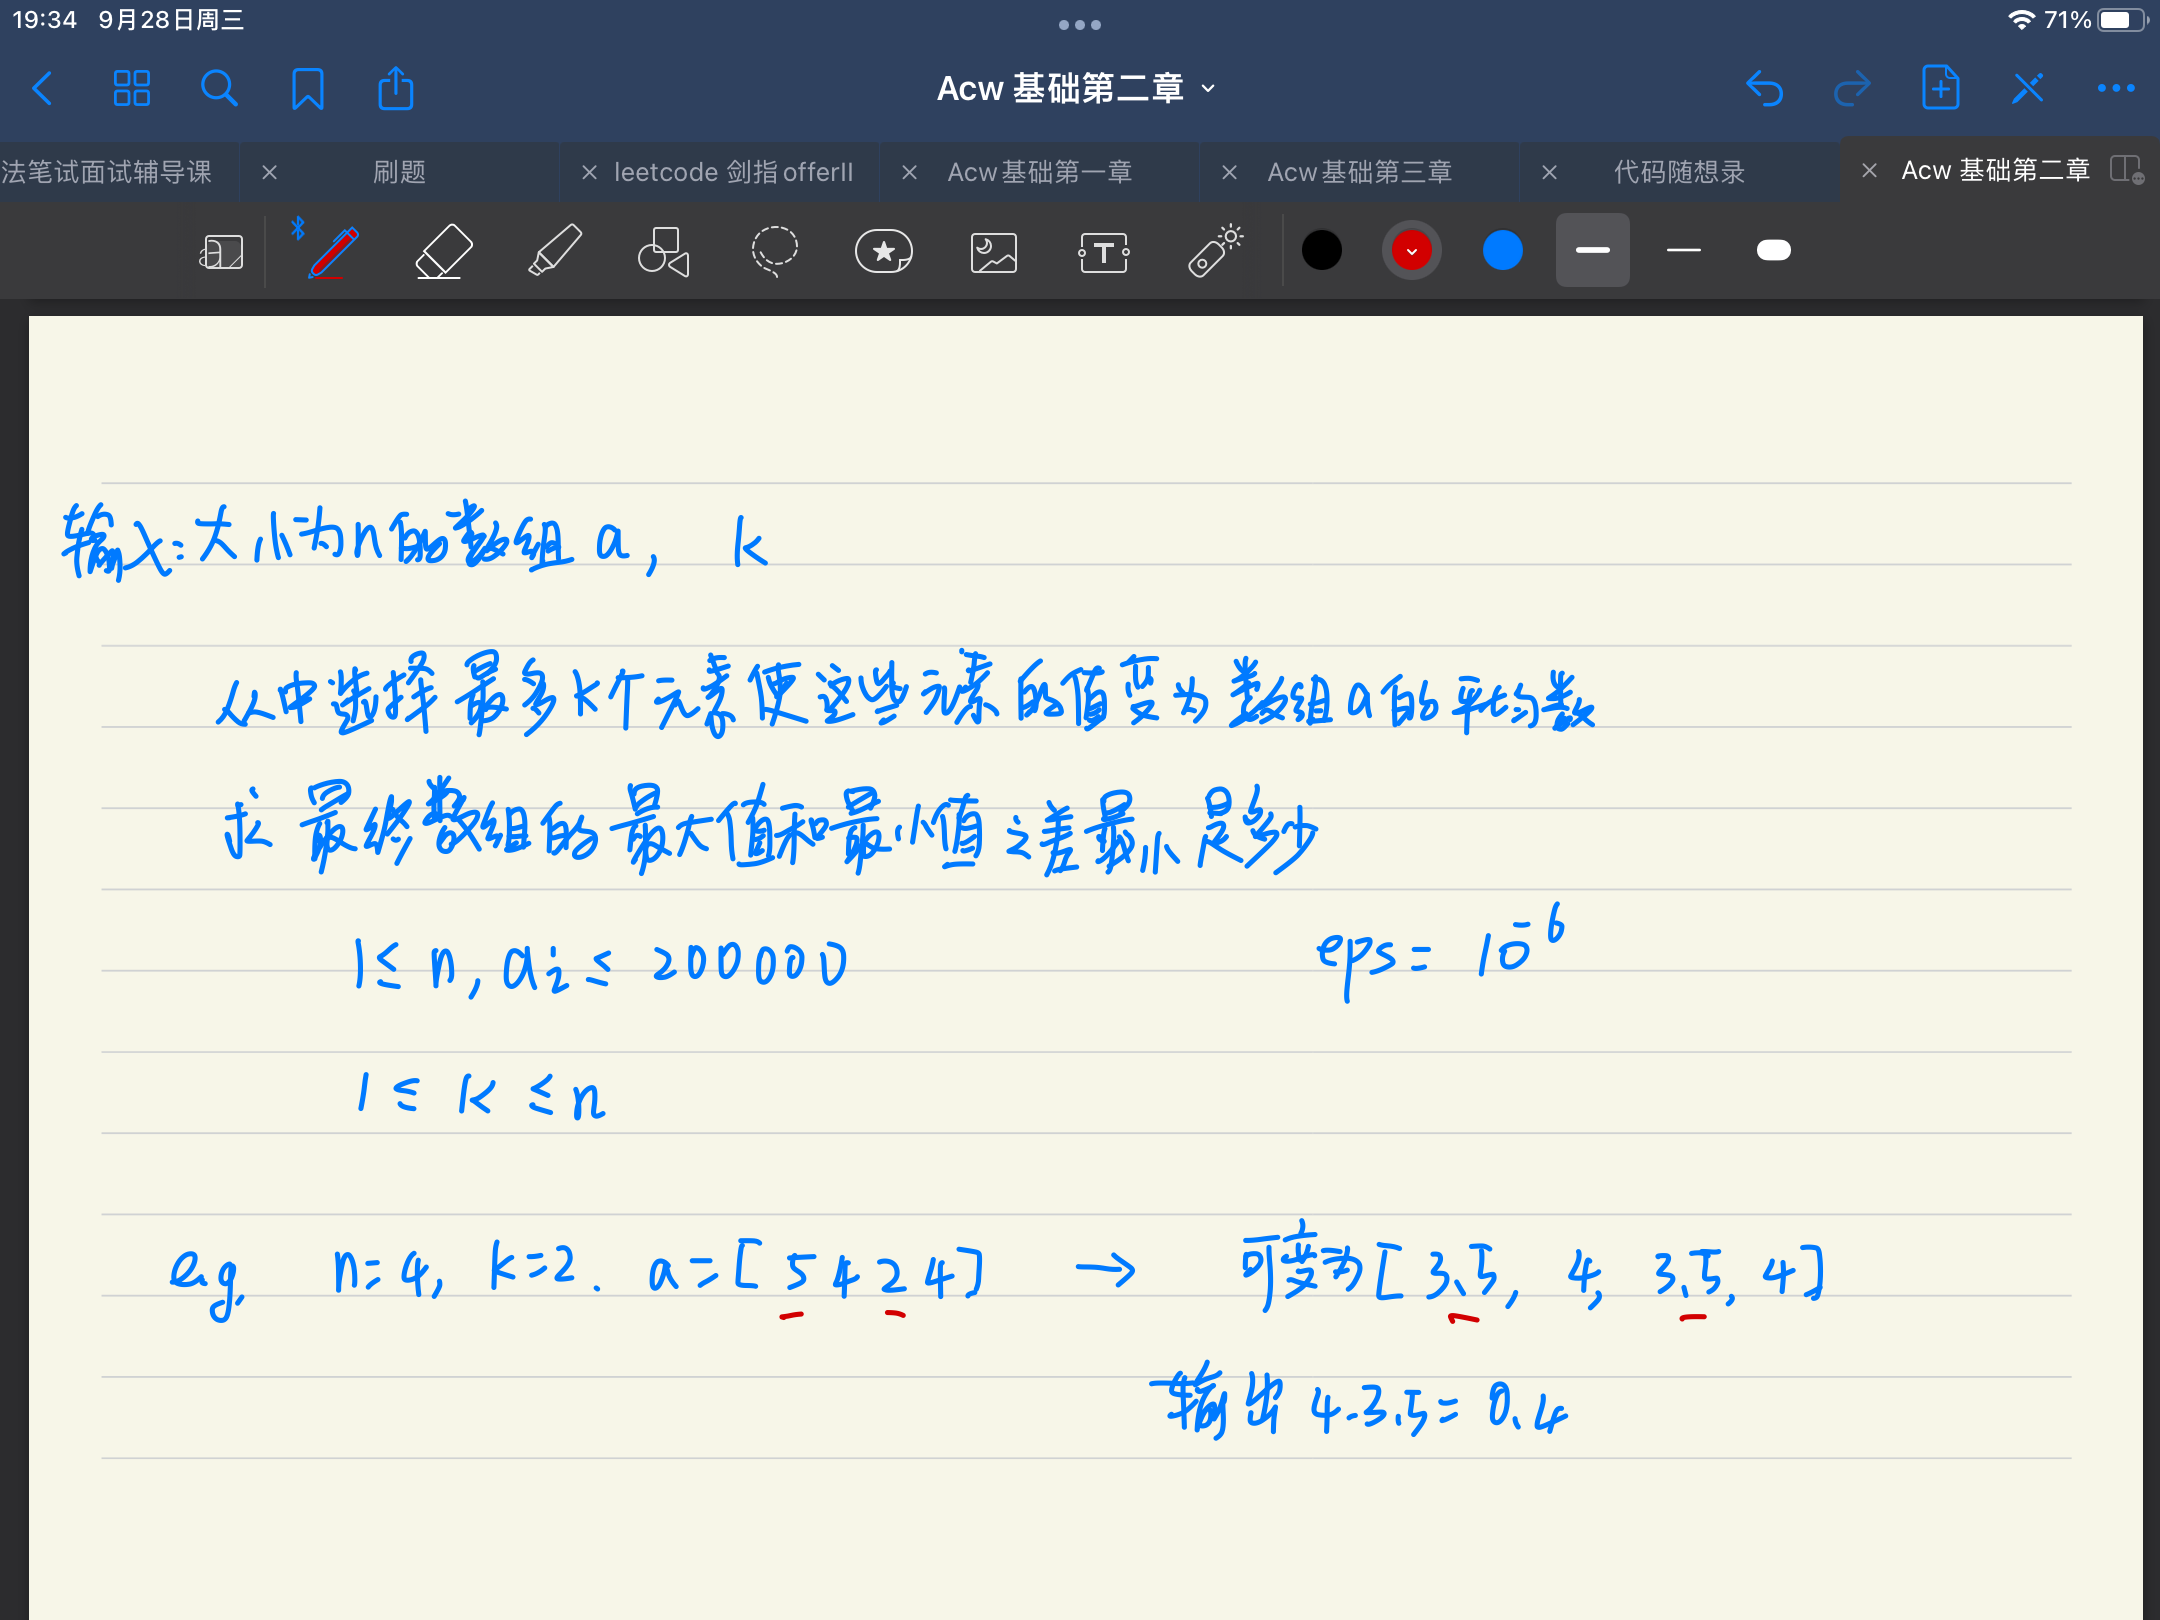 19:34 9月28日周三
71%
Acw 基础第二章
法笔试面试辅导课
刷题
leetcode 剑指offerII
Acw基础第一章
Acw基础第三章
代码随想录
Acw 基础第二章
输入:大小为n的数组a, k
从中选择最多k个元素使这些元素的值变为数组a的平均数
求最终数组的最大值和最小值之差最小是多少
1≤n,ai≤200000 eps=10^-6
1≤k≤n
e.g. n=4, k=2. a=[5 4 2 4] → 可变为[3.5, 4, 3.5, 4]
输出4-3.5=0.4